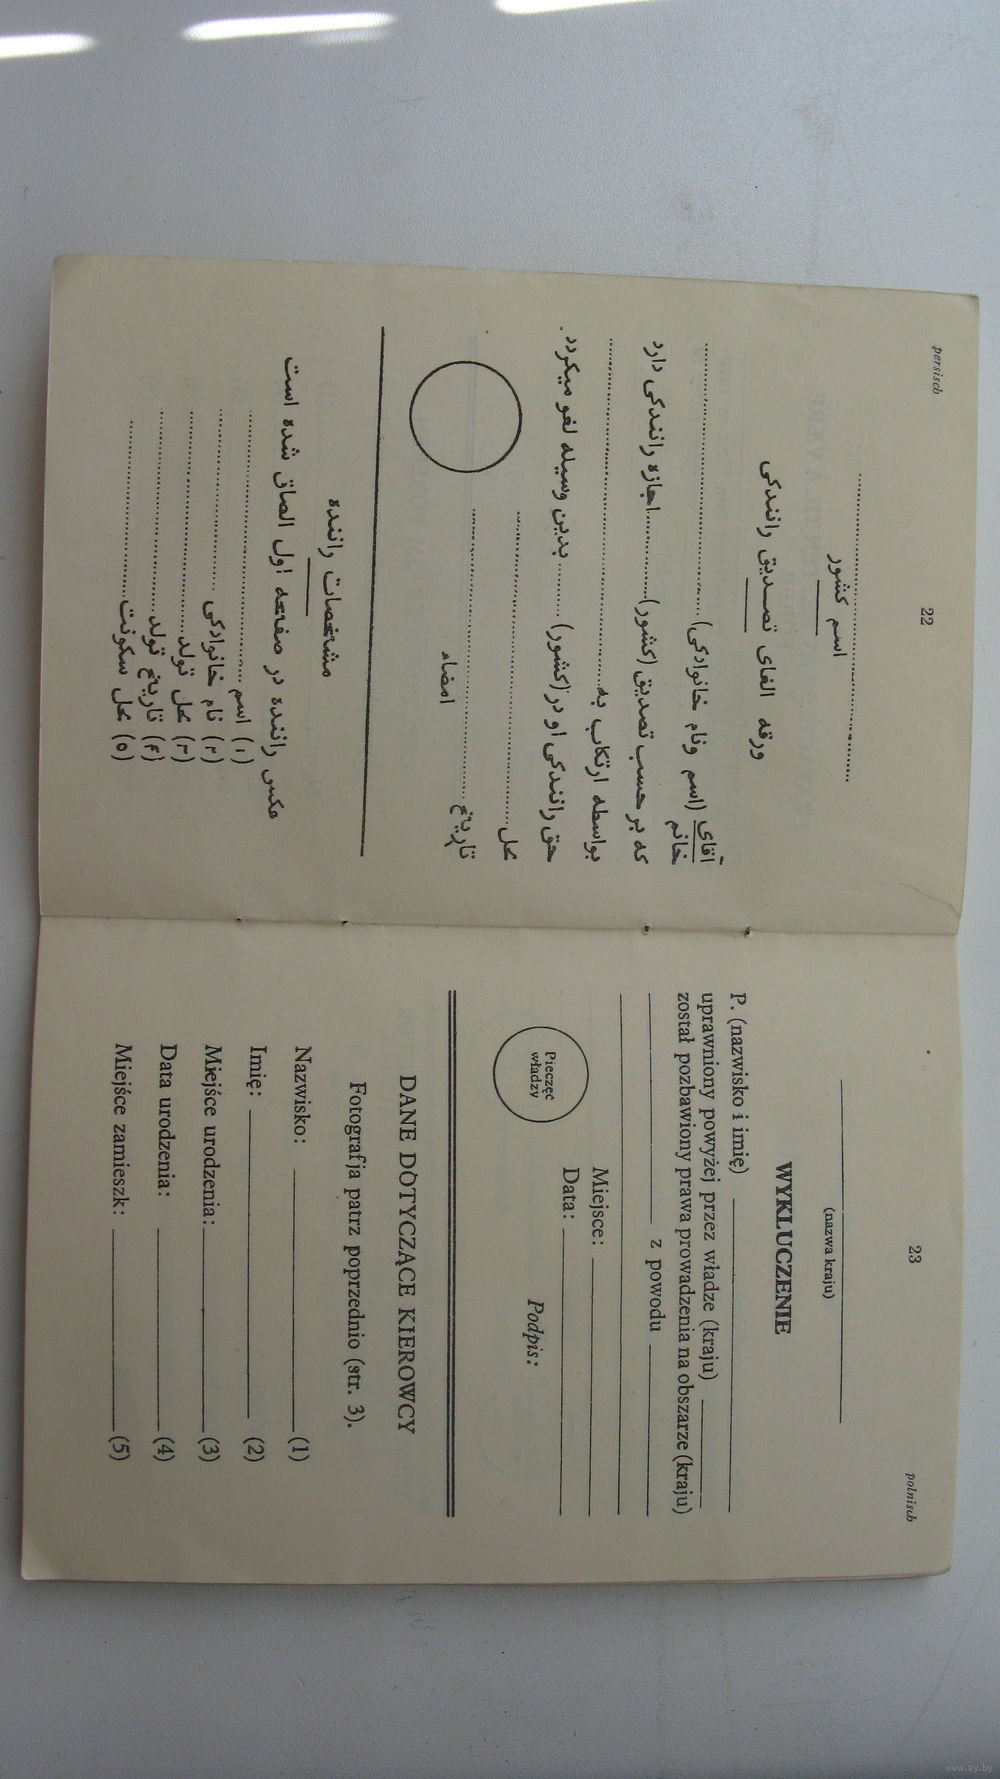 persisch
22
اسم کشور
ورقه الغای تصدیق رانندگی
آقای
خانم
(اسم ونام خانوادگی)
که بر حسب تصدیق (کشور) اجازه رانندگی دارد
بواسطه ارتکاب به
حق رانندگی او در (کشور) بدین وسیله لغو میگردد.
محل
تاریخ
امضاء
مشخصات راننده
عکس راننده در صفحه اول الصاق شده است
(۱) اسم
(۲) نام خانوادگی
(۳) محل تولد
(۴) تاریخ تولد
(۵) محل سکونت
23
polnisch
(nazwa kraju)
WYKLUCZENIE
P. (nazwisko i imię)
uprawniony powyżej przez władze (kraju)
został pozbawiony prawa prowadzenia na obszarze (kraju)
z powodu
Miejsce:
Data:
Pieczęć
władzy
Podpis:
DANE DOTYCZĄCE KIEROWCY
Fotografja patrz poprzednio (str. 3).
Nazwisko: (1)
Imię: (2)
Miejśce urodzenia: (3)
Data urodzenia: (4)
Miejśce zamieszk: (5)
www.ay.by